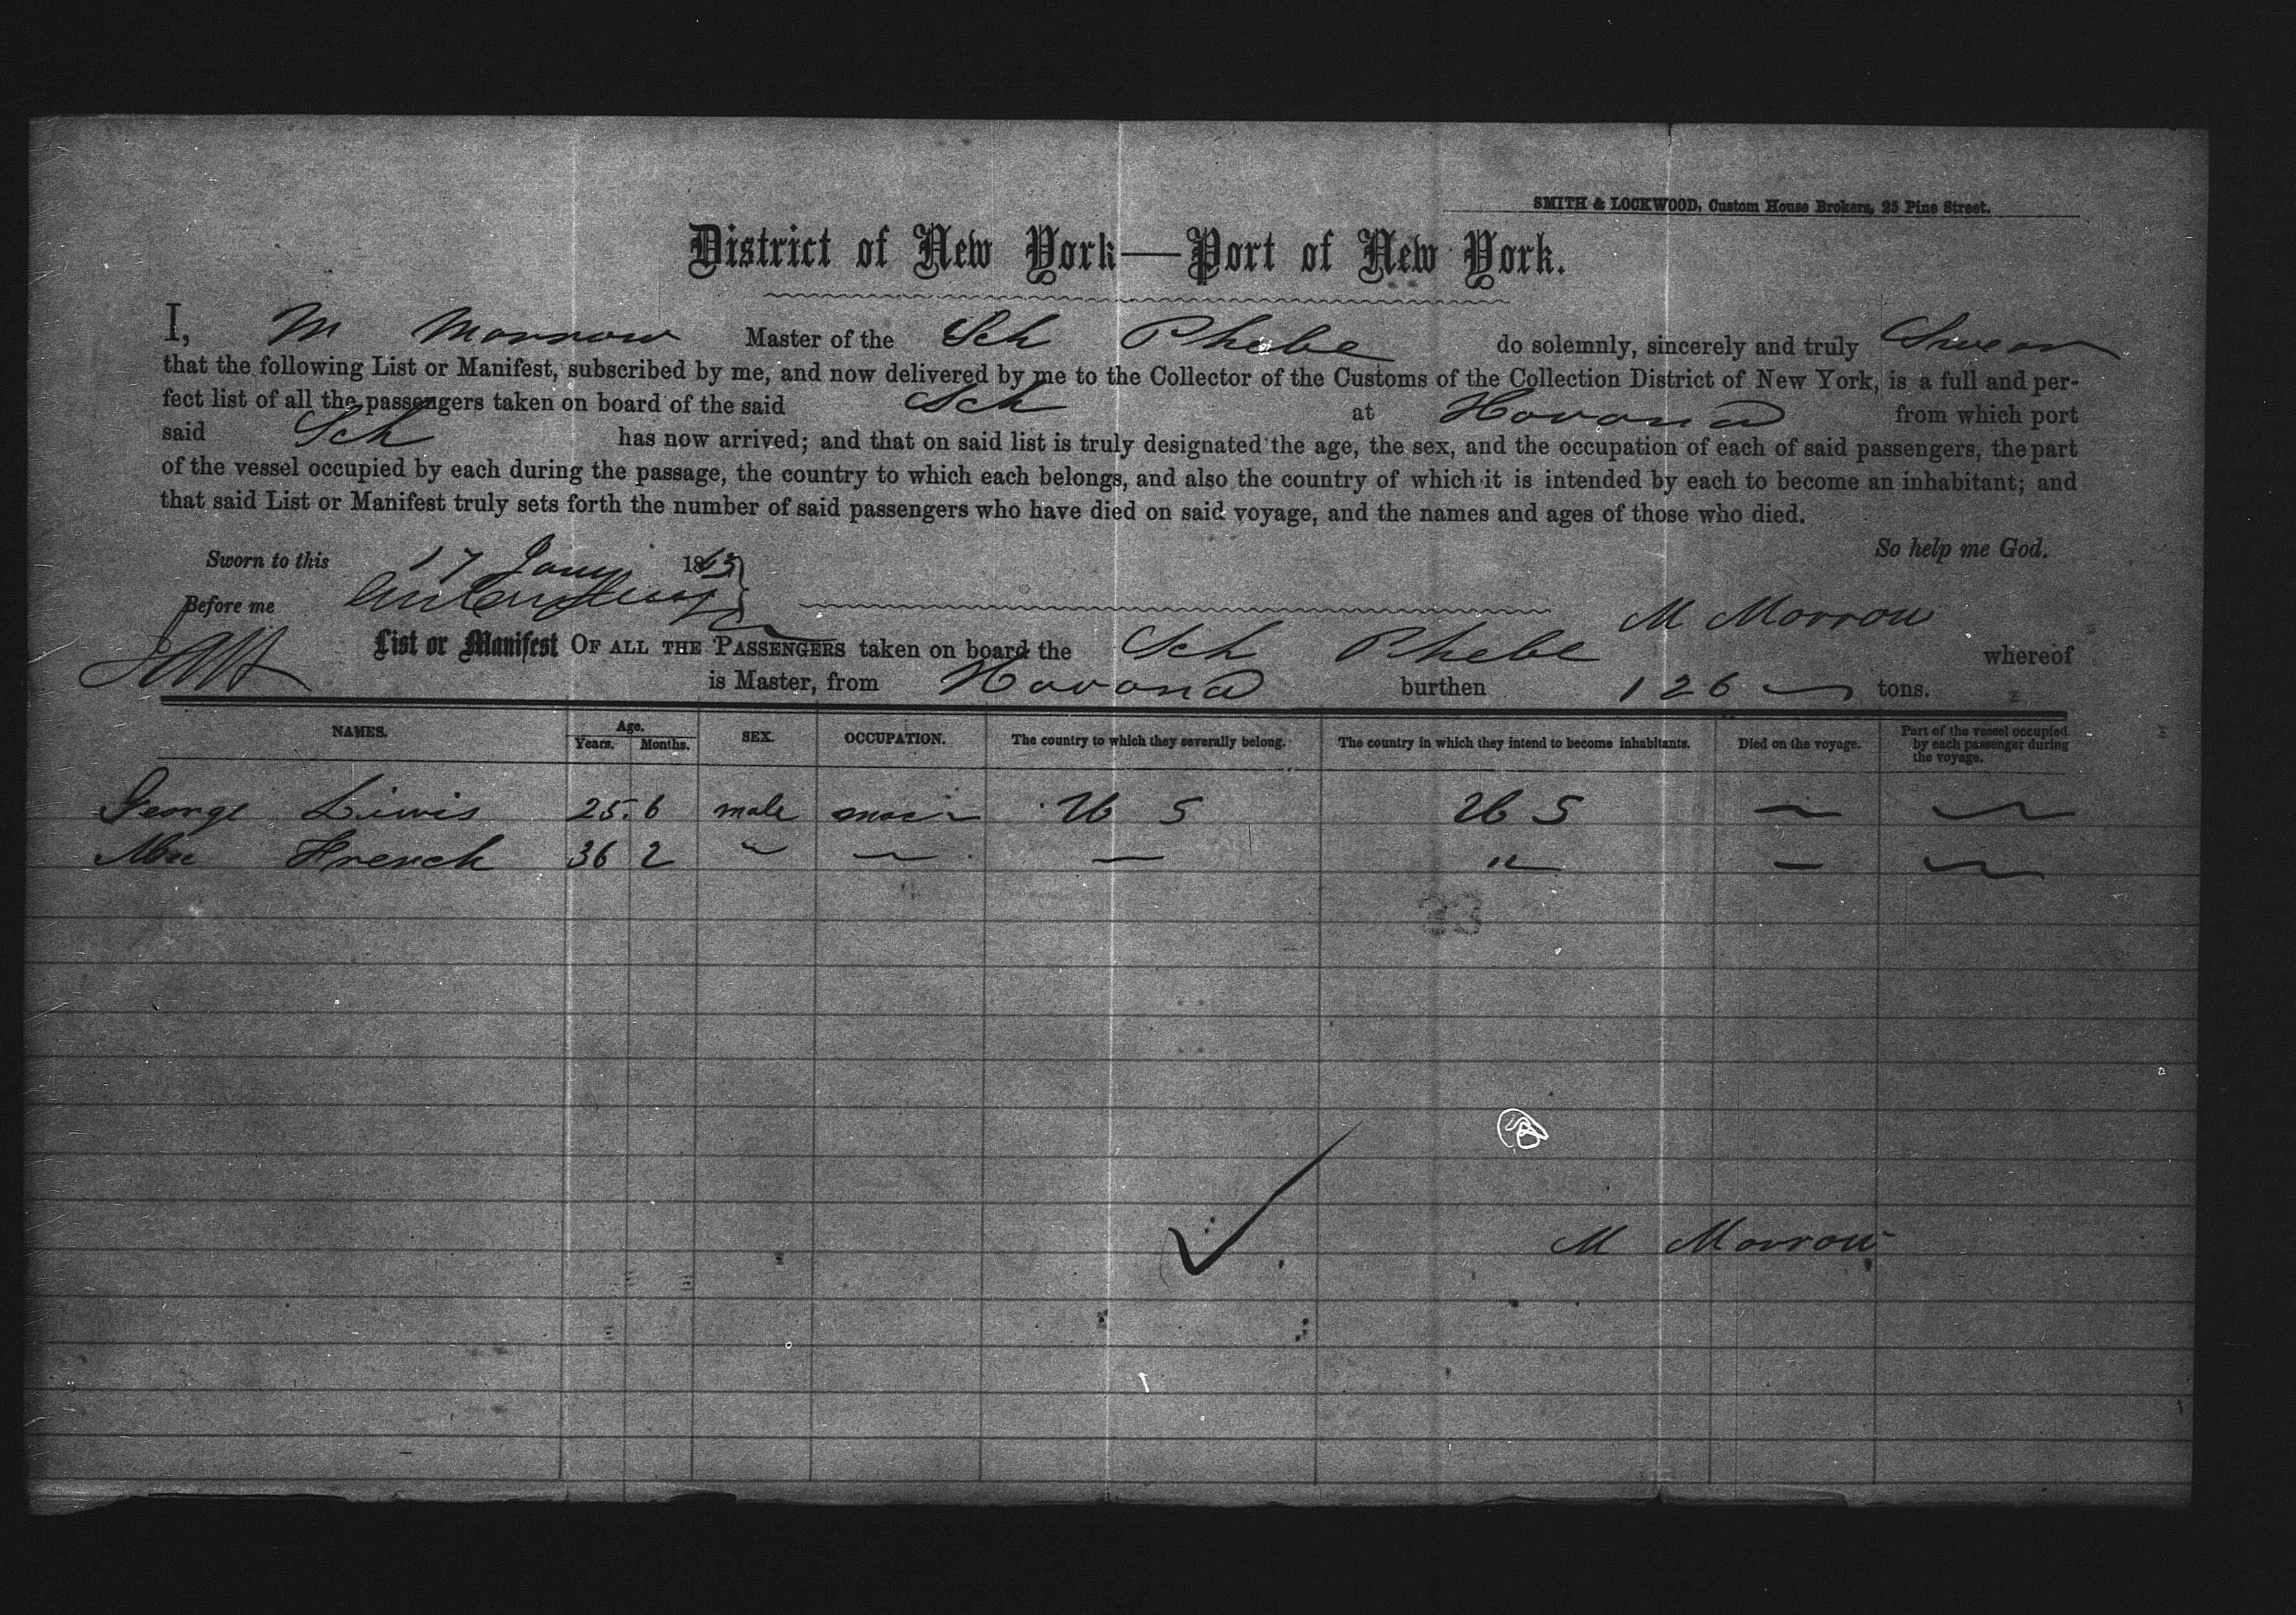 SMITH & LOCKWOOD, Custom House Brokers, 25 Pine Street.
District of New York—Port of New York.
I, M Morrow Master of the Sch Phebe do solemnly, sincerely and truly Swear
that the following List or Manifest, subscribed by me, and now delivered by me to the Collector of the Customs of the Collection District of New York, is a full and per-
fect list of all the passengers taken on board of the said Sch at Havana from which port
said Sch has now arrived; and that on said list is truly designated the age, the sex, and the occupation of each of said passengers, the part
of the vessel occupied by each during the passage, the country to which each belongs, and also the country of which it is intended by each to become an inhabitant; and
that said List or Manifest truly sets forth the number of said passengers who have died on said voyage, and the names and ages of those who died.
So help me God.
Sworn to this 17 Jany 1863
Before me
M Morrow
List or Manifest OF ALL THE PASSENGERS taken on board the Sch Phebe whereof
is Master, from Havana burthen 126 tons.
NAMES. Age. Years. Months. SEX. OCCUPATION. The country to which they severally belong. The country in which they intend to become inhabitants. Died on the voyage. Part of the vessel occupied by each passenger during the voyage.
George Lewis 25 6 male U S U S — —
French 36 2 " — — " — —
M Morrow